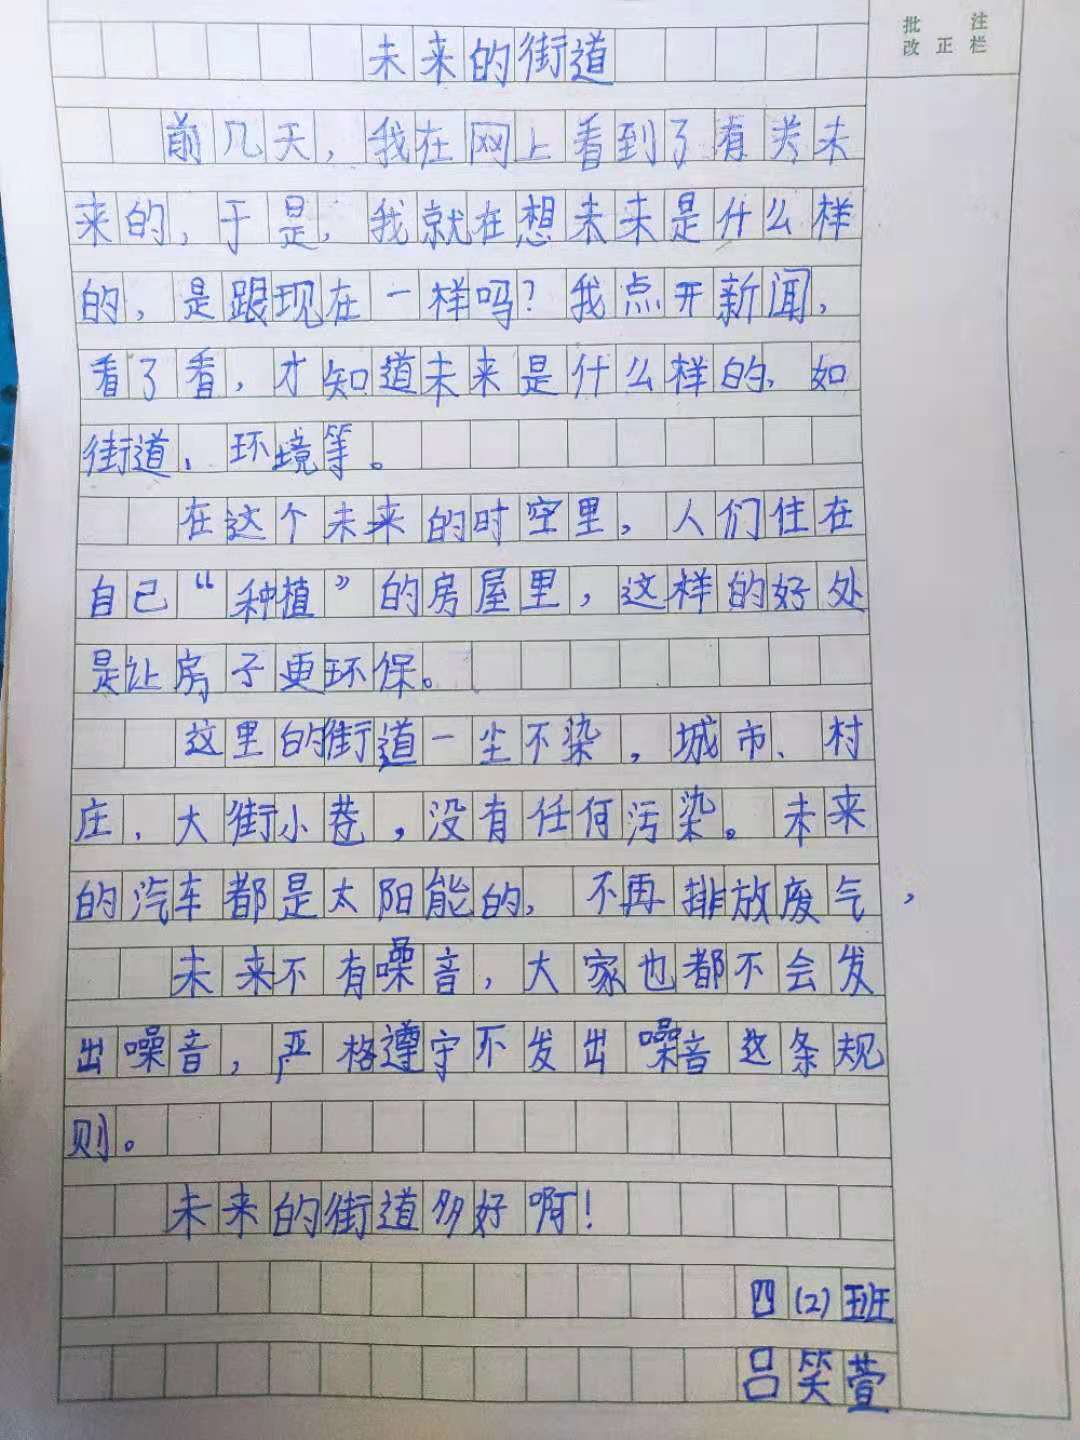 批 注
改 正 栏
未来的街道
前几天，我在网上看到了有关未
来的，于是，我就在想未来是什么样
的，是跟现在一样吗？我点开新闻，
看了看，才知道未来是什么样的，如
街道、环境等。
在这个未来的时空里，人们住在
自己“种植”的房屋里，这样的好处
是让房子更环保。
这里的街道一尘不染，城市、村
庄、大街小巷，没有任何污染。未来
的汽车都是太阳能的，不再排放废气，
未来不有噪音，大家也都不会发
出噪音，严格遵守不发出噪音这条规
则。
未来的街道多好啊！
四(2)班
吕笑萱